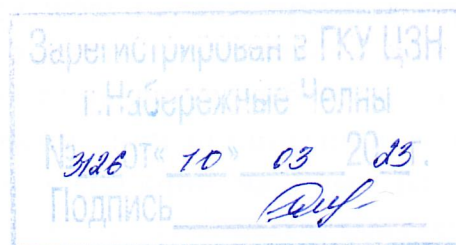 Зарегистрирован в ГКУ ЦЗН
г.Набережные Челны
№ 3126 от « 10 » 03 2023 г.
Подпись